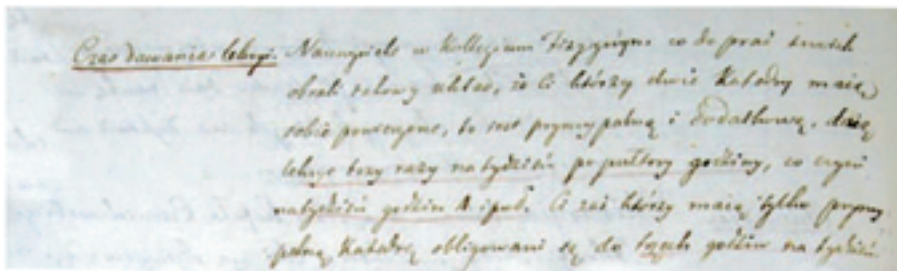 Czas dawania lekcyi. Nauczyciele w Kollegium Fizycznym co do prac swoich
obrali sobowy układ, iż Ci którzy dwie Katedry maią
sobie poruczone, to iest pryncypalną i dodatkową, daią
lekcye trzy razy na tydzień po pułtory godziny, co czyni
na tydzień godzin 4 i puł. Ci zaś którzy maią tylko pryncy
palną Katedrę obligowani są do trzech godzin na tydzień